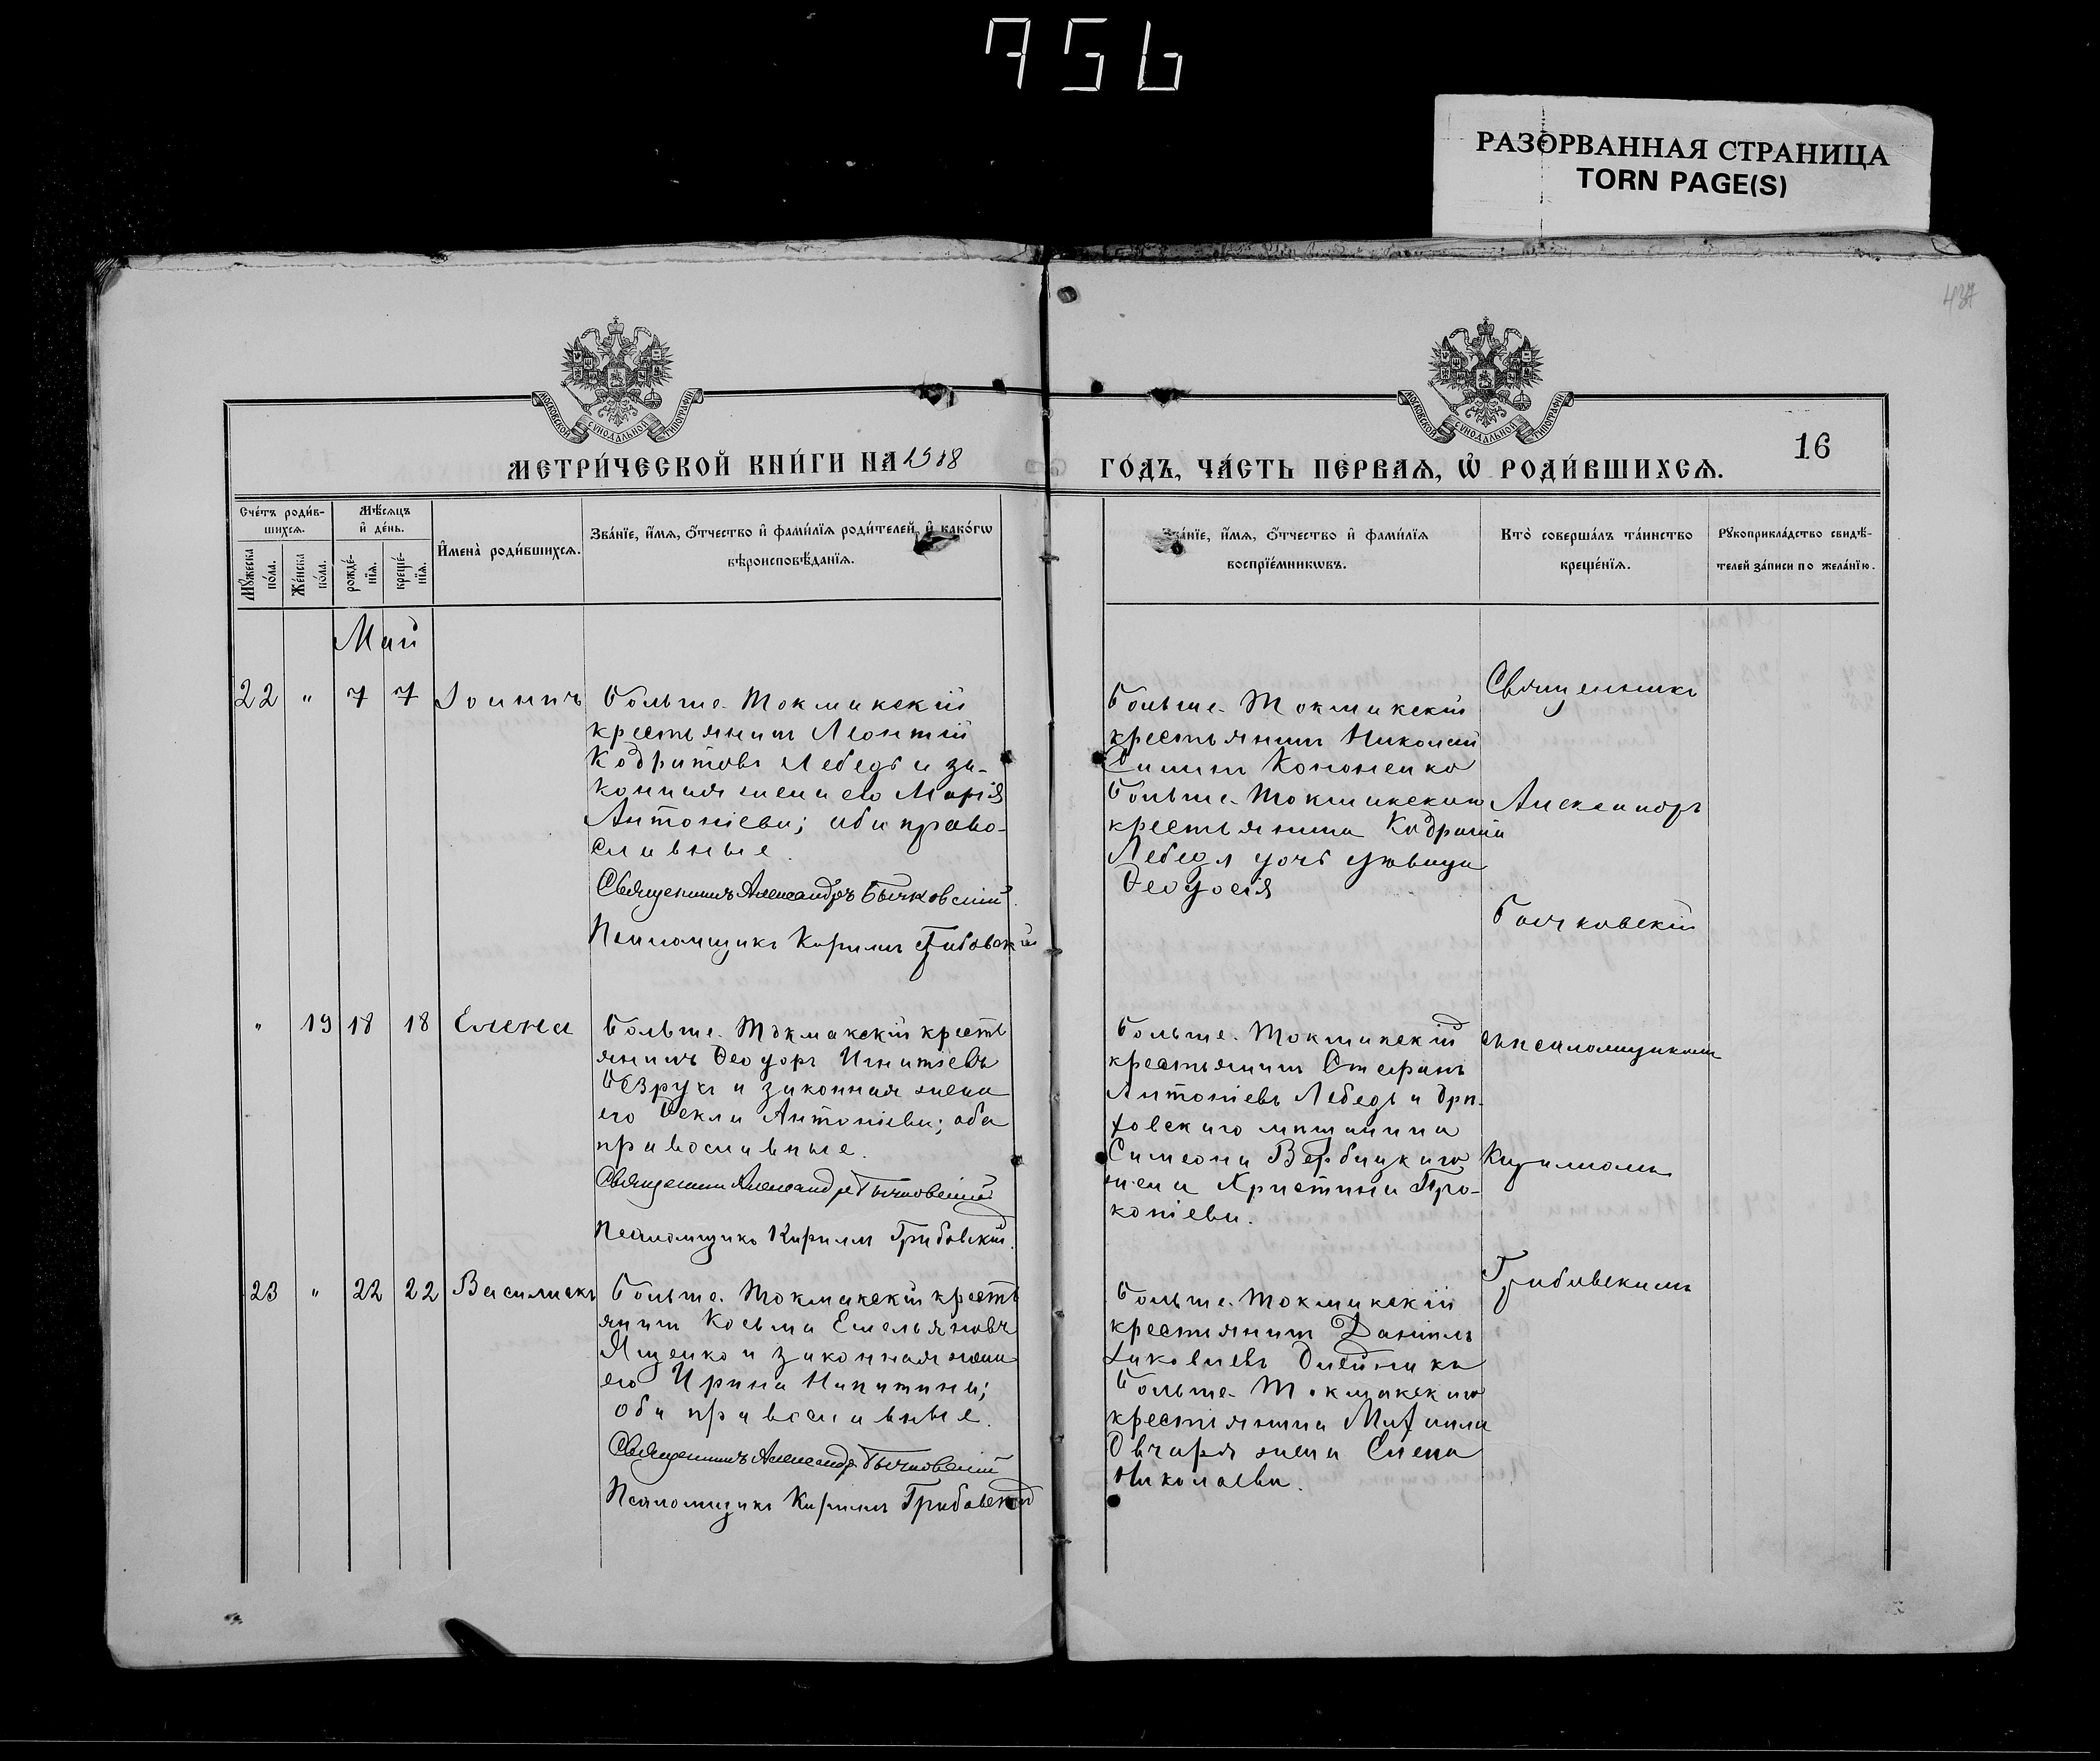 756
РАЗОРВАННАЯ СТРАНИЦА
TORN PAGE(S)
437
МОСКОВСКОЙ СѴНОДАЛЬНОЙ ТИПОГРАФІИ
МОСКОВСКОЙ СѴНОДАЛЬНОЙ ТИПОГРАФІИ
МЕТРИ́ЧЕСКОЙ КНИ́ГИ НА 1908
ГО́ДЪ, ЧА́СТЬ ПЕ́РВАѦ, Ѡ҆ РОДИ́ВШИХСѦ.
16
Сче́тъ роди́в-
шихсѧ.
Мѣ́сѧцъ
и҆ де́нь.
Мꙋ́жеска
по́ла.
Же́нска
по́ла.
рожде́-
нїѧ.
креще́-
нїѧ.
И҆мена̀ роди́вшихсѧ.
Зва́нїе, и҆́мѧ, ѻ҆́тчество и҆ фами́лїѧ роди́телей, и҆ како́гѡ
вѣроисповѣ́данїѧ.
Зва́нїе, и҆́мѧ, ѻ҆́тчество и҆ фами́лїѧ
воспрїе́мникѡвъ.
Кто̀ соверша́лъ та́инство
креще́нїѧ.
Рꙋкоприкла́дство свидѣ́-
телей за́писи по жела́нїю.
Май
22 " 7 7 Іоаннъ
Больше-Токмакскій
крестьянинъ Леонтій
Кодратовъ Лебедь и за-
конная жена его Марія
Антоніева; оба право-
славные.
Священникъ Александръ Бычковскій
Псаломщикъ Кириллъ Грибовскій
Больше-Токмакскій
крестьянинъ
Николай
Кононенко
Больше-Токмакскаго
крестьянина Кодратія
Лебедя дочь дѣвица
Ѳеодосія
Священникъ
Александръ
Бычковскій
" 19 18 18 Елена
Больше-Токмакскій кресть
янинъ Ѳеодоръ Игнатіевъ
Безрукъ и законная жена
его Ѳекла Антоніева; оба
православные.
Священникъ Александръ Бычковскій
Псаломщикъ Кириллъ Грибовскій
Больше-Токмакскій
крестьянинъ Стефанъ
Антоніевъ Лебедь и Орѣ-
ховскаго мѣщанина
Симеона Вербицкаго
жена Христина Про-
копіева.
съ псаломщикомъ
Кирилломъ
Грибовскимъ
23 " 22 22 Василискъ
Больше-Токмакскій кресть
янинъ Косьма Емельяновъ
Ященко и законная жена
его Ирина Никитина;
оба православные.
Священникъ Александръ Бычковскій
Псаломщикъ Кириллъ Грибовскій
Больше-Токмакскій
крестьянинъ Даніилъ
Іаковлевъ Олейникъ
Больше-Токмакскаго
крестьянина Михаила
Овчаря жена Елена
Николаева.